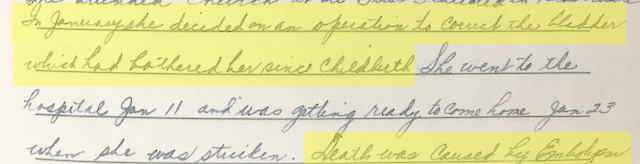 In January she decided on an operation to correct the bladder
which had bothered her since Childbirth. She went to the
hospital Jan 11 and was getting ready to come home Jan 23
when she was striken. Death was caused by Embolysm